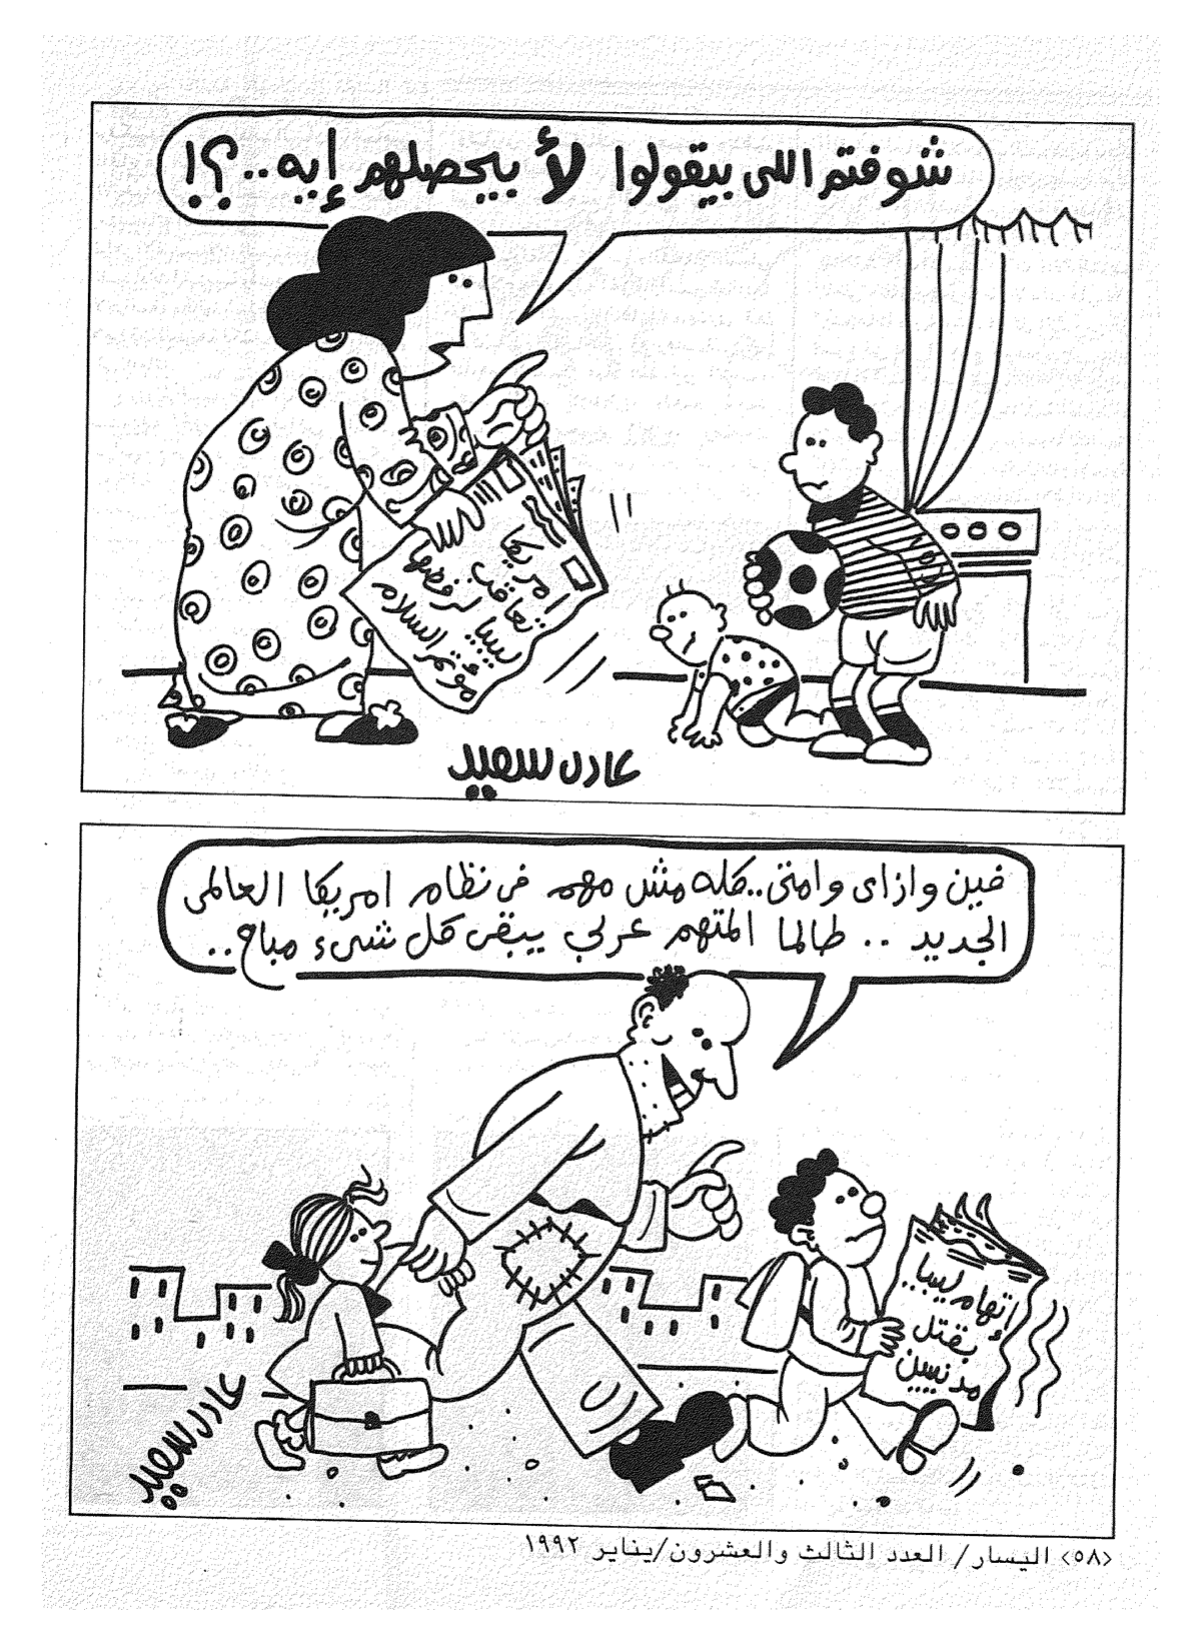 شوفتم اللى بيقولوا لأ بيحصلهم إيه..؟!
امريكا
تعاقب
ليبيا لرفضها
مؤتمر السلام
عادل سعيد
فين وازاى وامتى..كله مش مهم فى نظام امريكا العالمى
الجديد .. طالما المتهم عربي يبقى كل شىء مباح..
إتهام ليبيا..
بقتل
مدنيين
عادل سعيد
<٥٨> اليسار/ العدد الثالث والعشرون/يناير ١٩٩٢